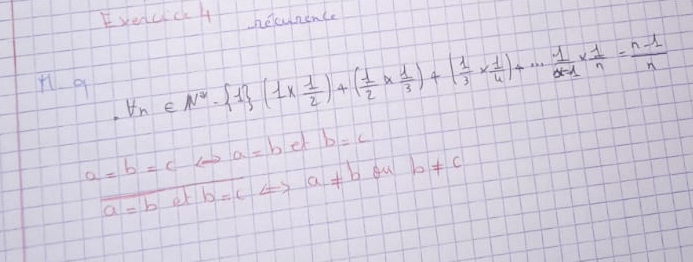 Exercice 4 récurence
M q
. ∀n ∈ N* - {1} (1 × 1/2) + (1/2 × 1/3) + (1/3 × 1/4) + ... 1/n-1 × 1/n = n-1/n
a = b = c ⇔ a = b et b = c
a = b et b = c ⇔ a ≠ b ou b ≠ c